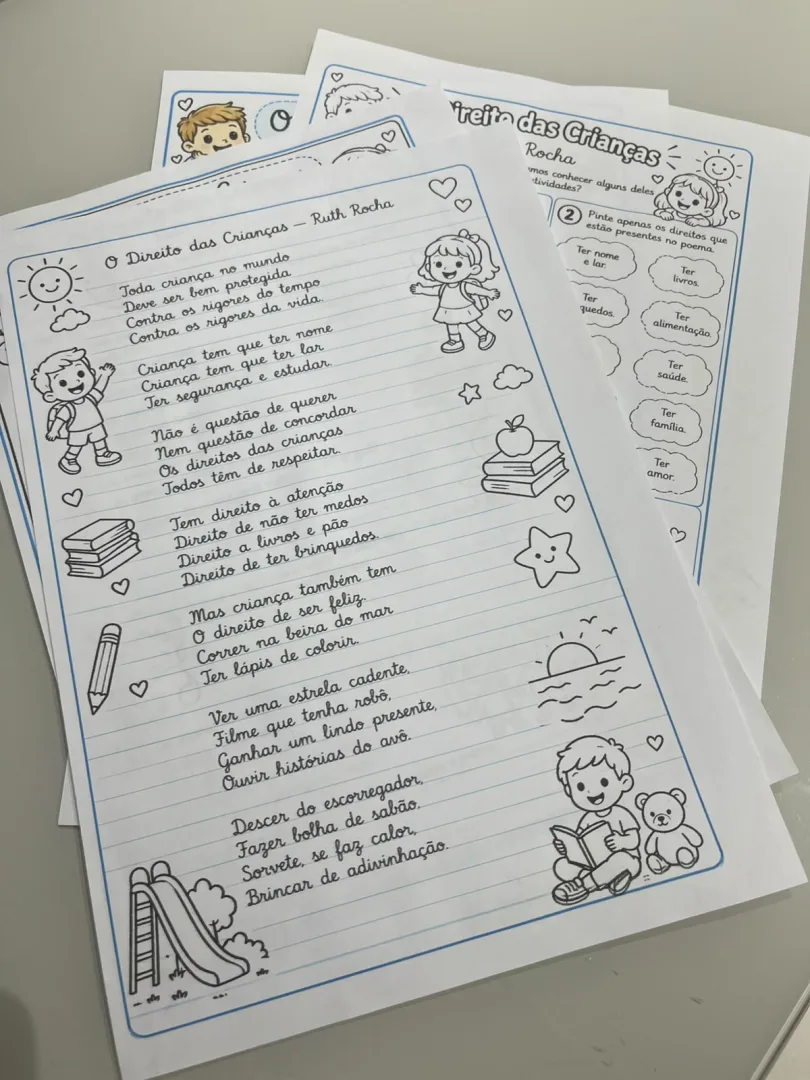 O Direito das Crianças — Ruth Rocha
Toda criança no mundo
Deve ser bem protegida
Contra os rigores do tempo
Contra os rigores da vida.
Criança tem que ter nome
Criança tem que ter lar
Ter segurança e estudar.
Não é questão de querer
Nem questão de concordar
Os direitos das crianças
Todos têm de respeitar.
Tem direito à atenção
Direito de não ter medos
Direito a livros e pão
Direito de ter brinquedos.
Mas criança também tem
O direito de ser feliz.
Correr na beira do mar
Ter lápis de colorir.
Ver uma estrela cadente,
Filme que tenha robô,
Ganhar um lindo presente,
Ouvir histórias do avô.
Descer do escorregador,
Fazer bolha de sabão,
Sorvete, se faz calor,
Brincar de adivinhação.
O
das Crianças
Rocha
conhecer alguns deles
2 Pinte apenas os direitos que
estão presentes no poema.
Ter nome
e lar.
Ter
livros.
Ter
Ter
alimentação.
Ter
saúde.
Ter
família.
Ter
amor.